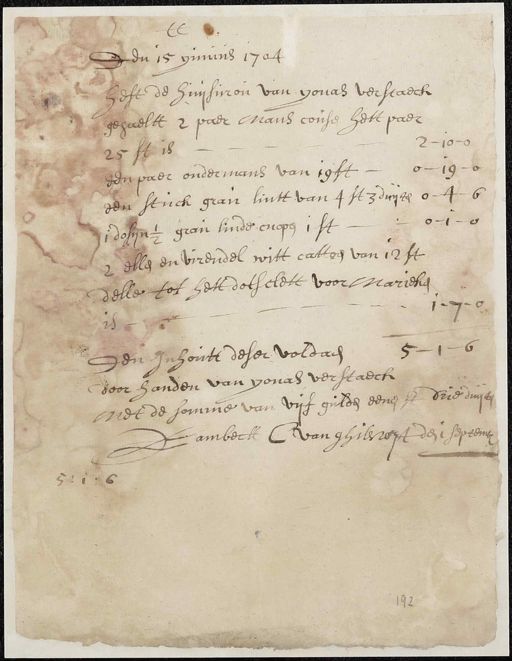 Den 15 yunius 1704
heft de huysvrou van yonas verstaeck
gehaeltt 2 paer mans couse hett paer
25 st is — 2-10-0
een paer ondermans van 19 st — 0-19-0
een stuck grau lintt van 4 st 3 duyts 0-4-6
1 dosyn ½ grau linde cnope 1 st — 0-1-0
2 elle en virendel witt van 12 st
delle tot hett voor Marieke
is — 1-7-0
Den Inhoutt deser voldaen 5-1-6
door handen van yonas verstaeck
Met de somme van vijf gulde een st drie duyts
Lambeck den 1 septemb
5-1-6
192